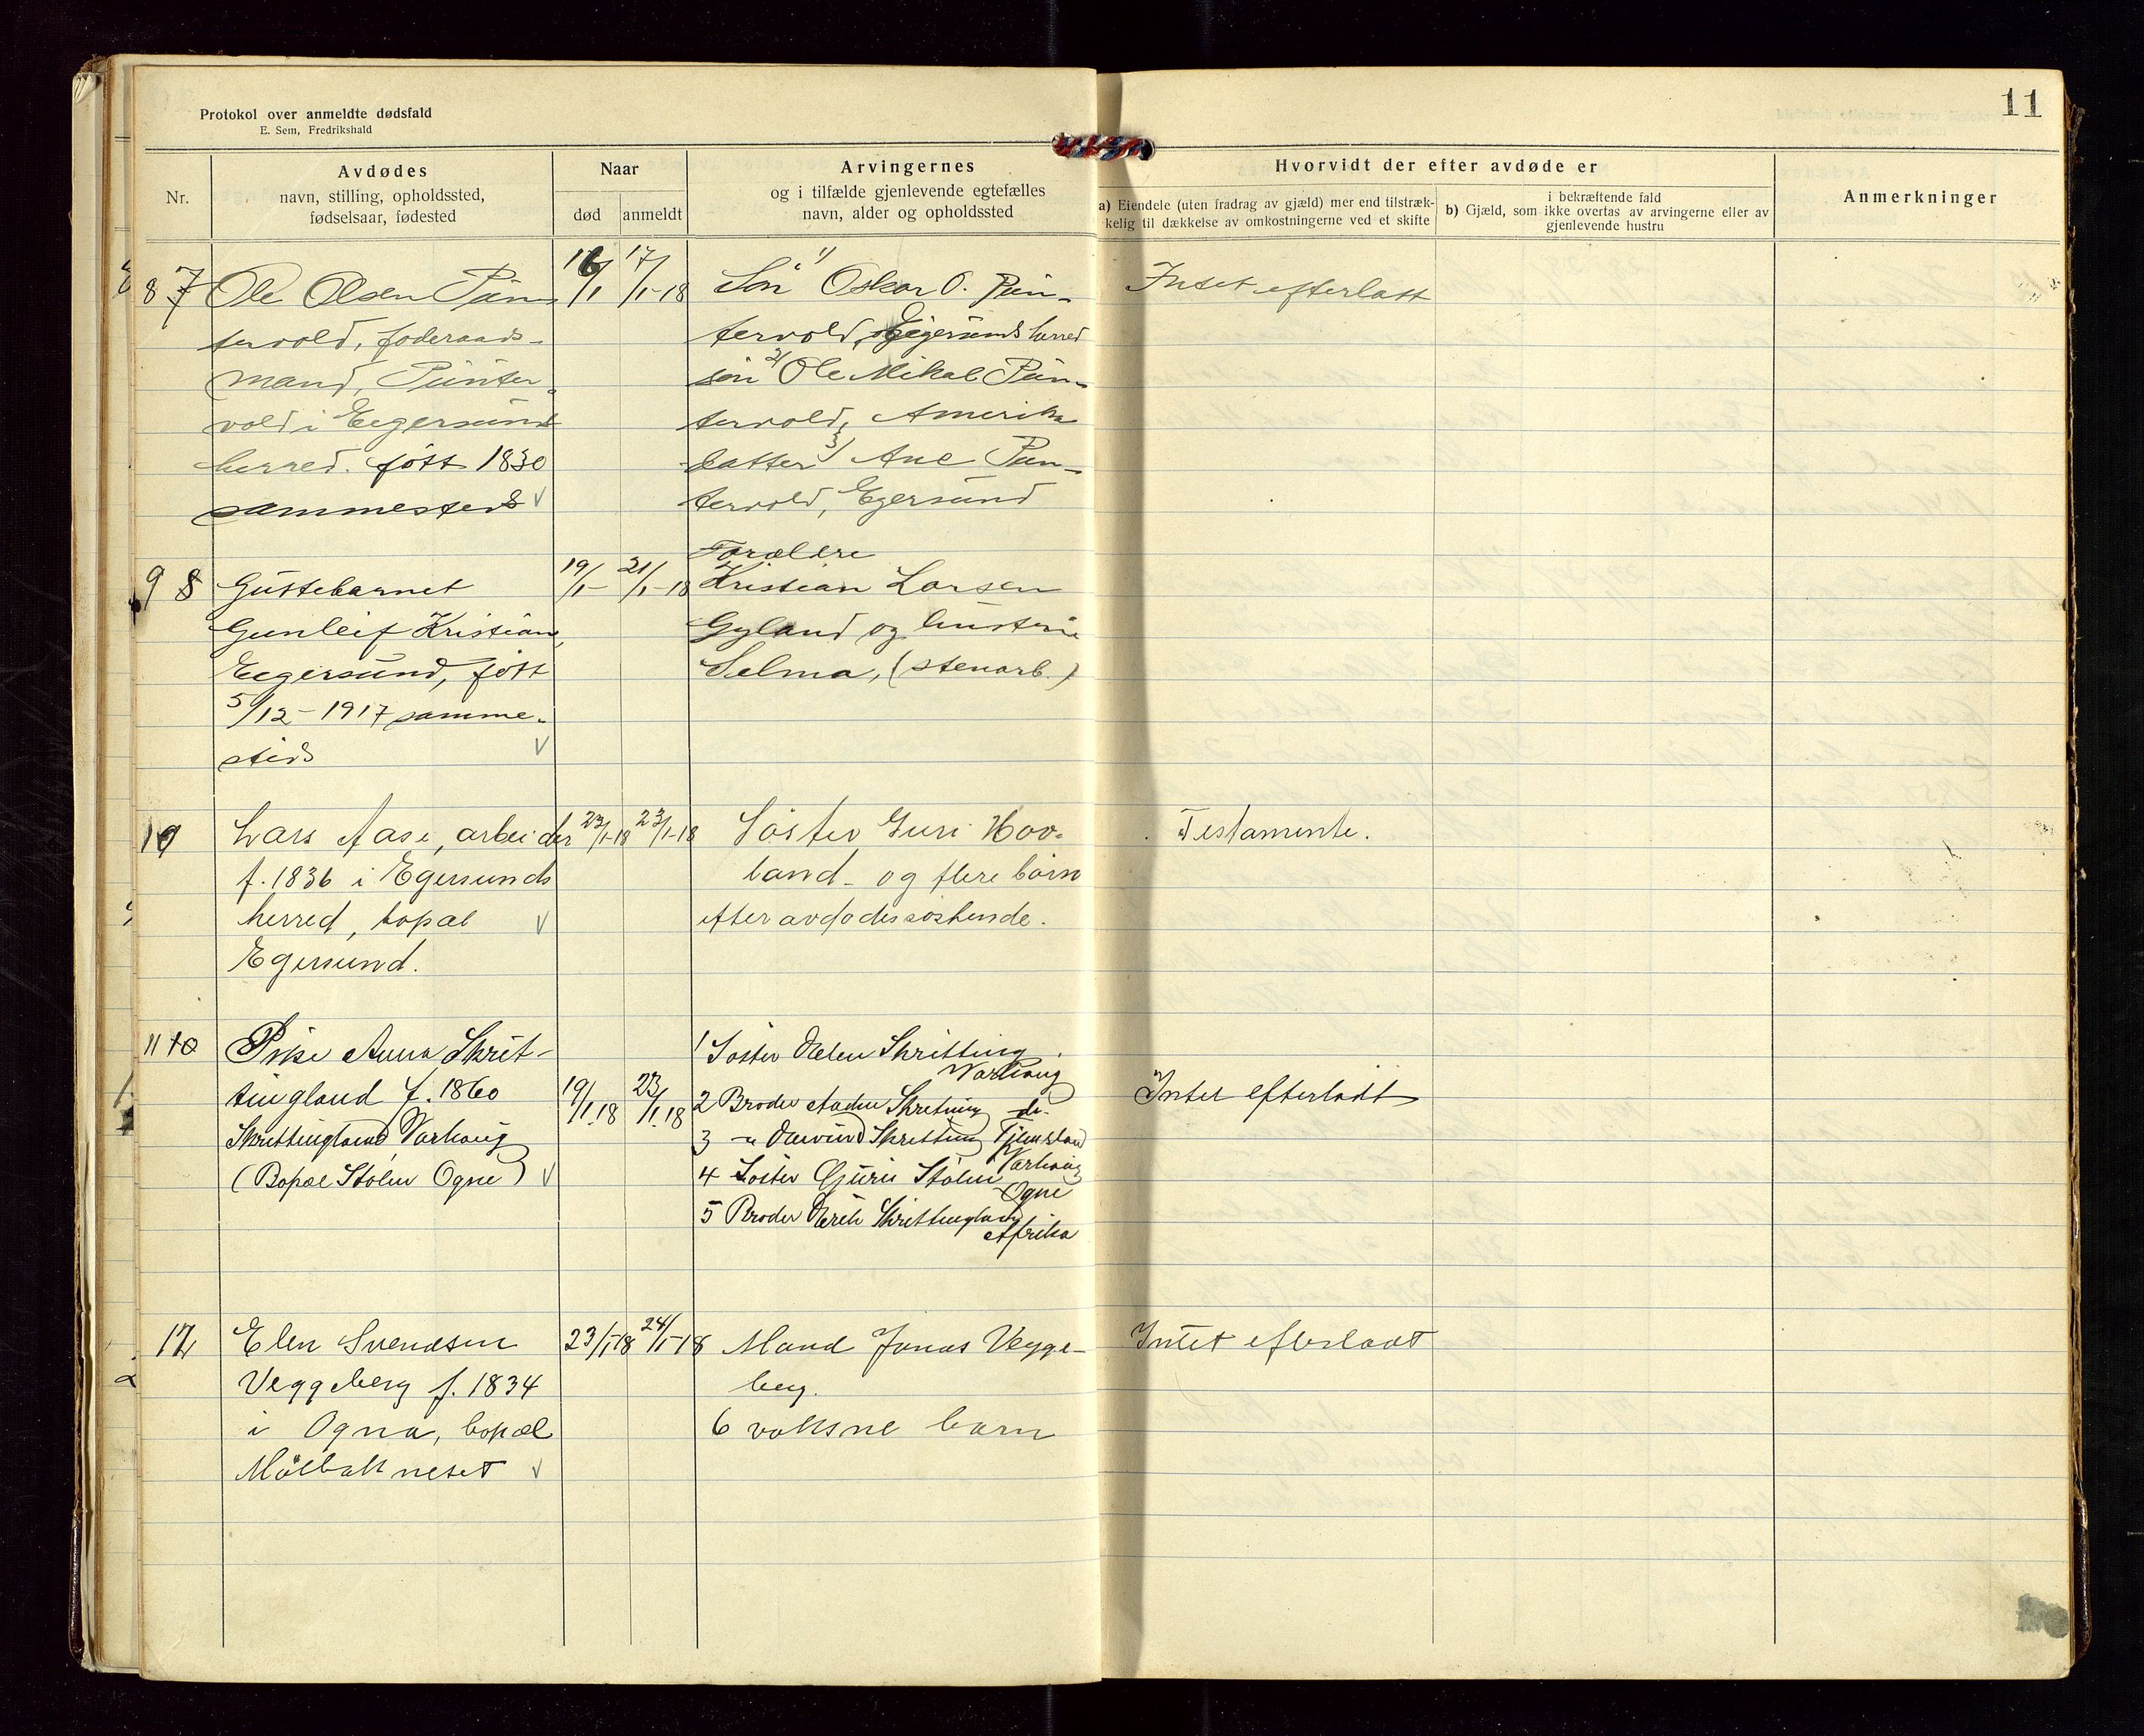 Protokol over anmeldte dødsfald
E. Sem, Fredrikshald
11
Nr.
Avdødes
navn, stilling, opholdssted,
fødselsaar, fødested
Naar
død
anmeldt
Arvingernes
og i tilfælde gjenlevende egtefælles
navn, alder og opholdssted
Hvorvidt der efter avdøde er
a) Eiendele (uten fradrag av gjæld) mer end tilstræk-
kelig til dækkelse av omkostningerne ved et skifte
i bekræftende fald
b) Gjæld, som ikke overtas av arvingerne eller av
gjenlevende hustru
Anmerkninger
8 7
Ole Olsen Pün-
tervold, føderaads-
mand, Pünter-
vold i Eegersund
herred. født 1830
sammesteds
16/1
17/1-18
Søn 1) Oskar O. Pün-
tervold, Egersunds herred
søn 2) Ole Mikal Pün-
tervold, Amerika
datter 3) Ane Pün-
tervold, Egersund
Intet efterlatt
9 8
Güttebarnet
Gunleif Kristian,
Eegersund, født
5/12-1917 samme-
steds
19/1-
21/1-18
Forældre
Kristian Larsen
Gyland og hustru
Selma, (stenarb.)
10
Lars Aase, arbeider
f. 1836 i Egersunds
herred, bopæl
Egersund.
23/1-18
23/1-18
Søster Guri Hov-
land - og flere børn
efter avdødes søskende.
Testamente.
11 10
Pike Anna Skret-
tingland f. 1860
Skrettingland, Varhaug
(Bopæl Stølen Ogne)
19/1.18
23/1.18
1 Søster Helen Skretting
Varhaug
2 Broder Aaden Skretting do.
3 -"- Skretting Tjemsland
Varhaug
4 Søster Gjuri Stølen
Ogne
5 Broder Skrettingland
Afrika
Intet efterladt
12
Elen Svendsen
Veggeberg f. 1834
i Ogna, bopæl
Mølbakneset
23/1-18
24/1-18
Mand Jonas Vegge-
berg.
6 voksne barn
Intet efterladt